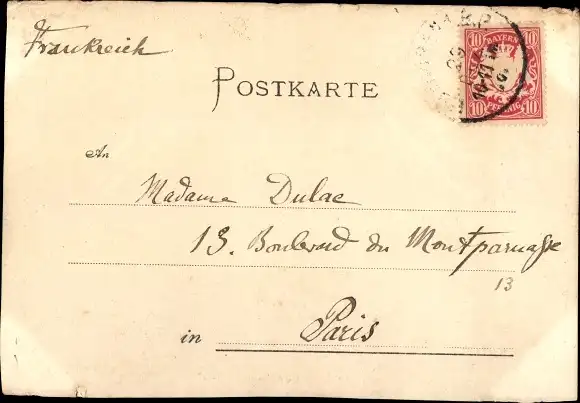 Frankreich
BAYERN
10 10
10 PFENNIG 10
POSTKARTE
An
Madame Dulac
13. Boulevard du Montparnasse
13
in Paris